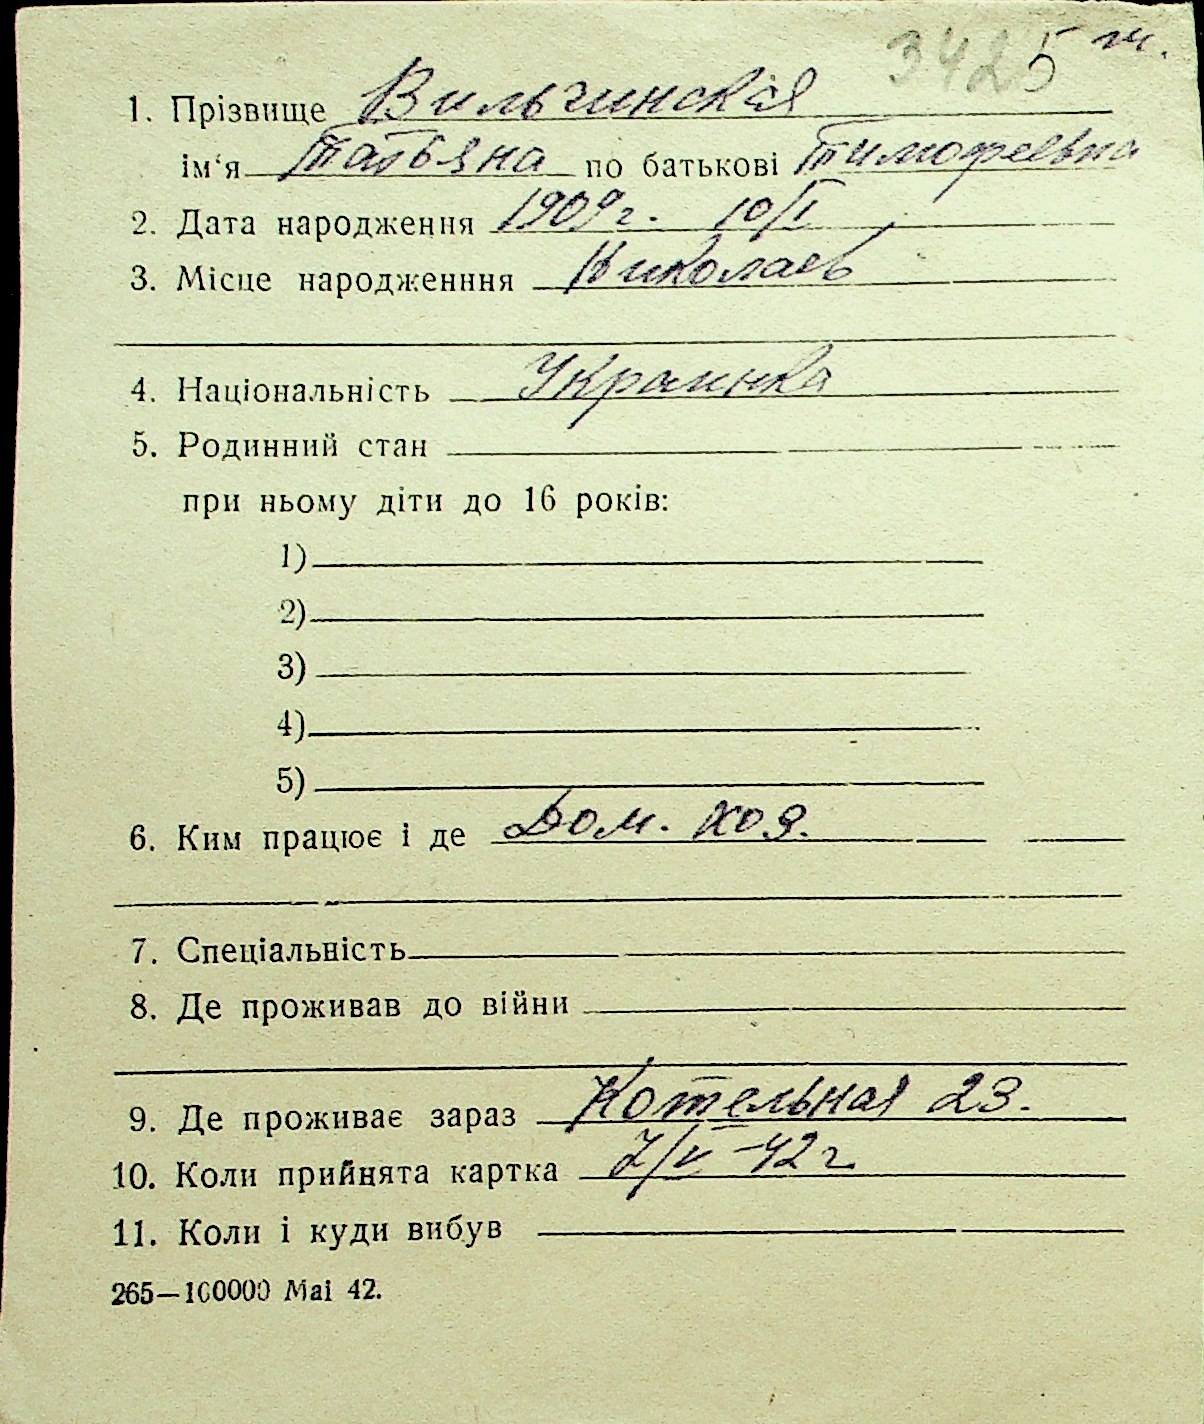 3425 м.
1. Прізвище Вильчинская
ім‘я Татьяна по батькові Тимофеевна
2. Дата народження 1909 г. 10/I
3. Місце народженння Николаев
4. Національність Украинка
5. Родинний стан
при ньому діти до 16 років:
1)
2)
3)
4)
5)
6. Ким працює і де Дом. хоз.
7. Спеціальність
8. Де проживав до війни
9. Де проживає зараз Котельная 23.
10. Коли прийнята картка 7/V-42 г
11. Коли і куди вибув
265—100000 Mai 42.